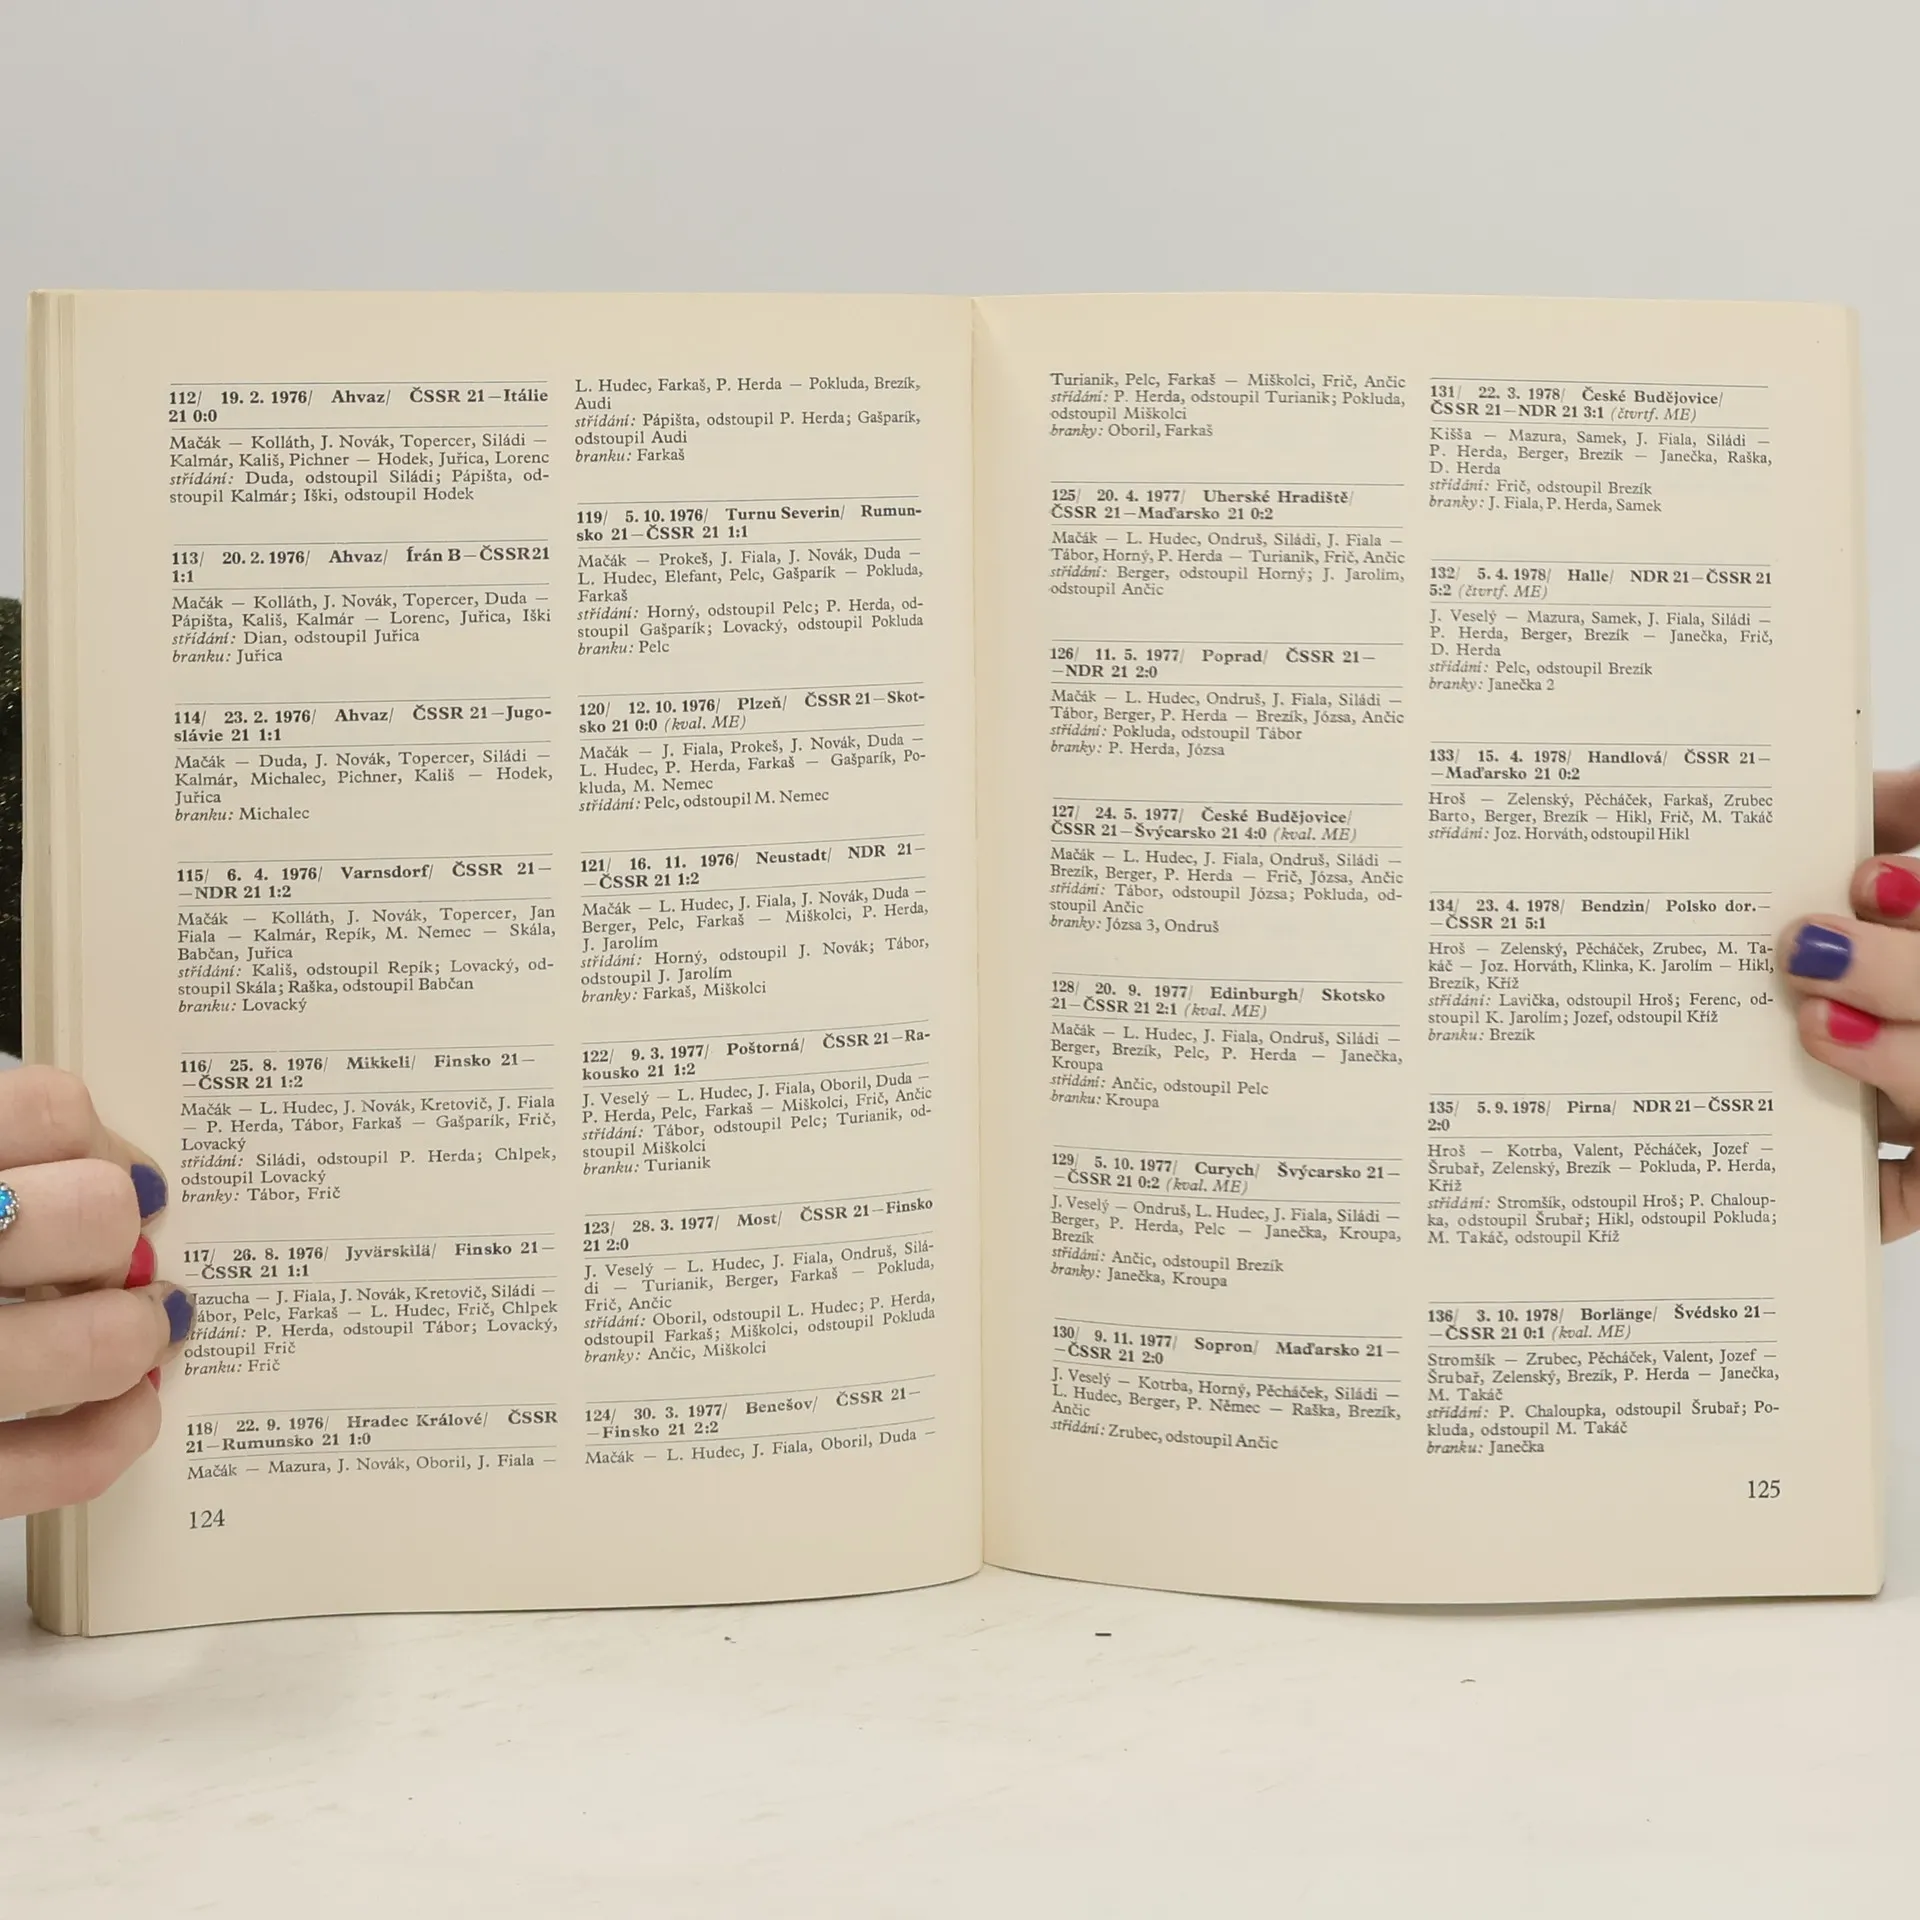 112/ 19. 2. 1976/ Ahvaz/ ČSSR 21—Itálie
21 0:0
Mačák — Kolláth, J. Novák, Topercer, Siládi —
Kalmár, Kališ, Pichner — Hodek, Juřica, Lorenc
střídání: Duda, odstoupil Siládi; Pápišta, od-
stoupil Kalmár; Iški, odstoupil Hodek
113/ 20. 2. 1976/ Ahvaz/ Írán B—ČSSR21
1:1
Mačák — Kolláth, J. Novák, Topercer, Duda —
Pápišta, Kališ, Kalmár — Lorenc, Juřica, Iški
střídání: Dian, odstoupil Juřica
branku: Juřica
114/ 23. 2. 1976/ Ahvaz/ ČSSR 21—Jugo-
slávie 21 1:1
Mačák — Duda, J. Novák, Topercer, Siládi —
Kalmár, Michalec, Pichner, Kališ — Hodek,
Juřica
branku: Michalec
115/ 6. 4. 1976/ Varnsdorf/ ČSSR 21—
—NDR 21 1:2
Mačák — Kolláth, J. Novák, Topercer, Jan
Fiala — Kalmár, Repík, M. Nemec — Skála,
Babčan, Juřica
střídání: Kališ, odstoupil Repík; Lovacký, od-
stoupil Skála; Raška, odstoupil Babčan
branku: Lovacký
116/ 25. 8. 1976/ Mikkeli/ Finsko 21—
—ČSSR 21 1:2
Mačák — L. Hudec, J. Novák, Kretovič, J. Fiala
— P. Herda, Tábor, Farkaš — Gašparík, Frič,
Lovacký
střídání: Siládi, odstoupil P. Herda; Chlpek,
odstoupil Lovacký
branky: Tábor, Frič
117/ 26. 8. 1976/ Jyvärskilä/ Finsko 21—
—ČSSR 21 1:1
— J. Fiala, J. Novák, Kretovič, Siládi —
Pelc, Farkaš — L. Hudec, Frič, Chlpek
P. Herda, odstoupil Tábor; Lovacký,
odstoupil Frič
branku: Frič
118/ 22. 9. 1976/ Hradec Králové/ ČSSR
21—Rumunsko 21 1:0
Mačák — Mazura, J. Novák, Oboril, J. Fiala —
124
L. Hudec, Farkaš, P. Herda — Pokluda, Brezík,
Audi
střídání: Pápišta, odstoupil P. Herda; Gašparík,
odstoupil Audi
branku: Farkaš
119/ 5. 10. 1976/ Turnu Severin/ Rumun-
sko 21—ČSSR 21 1:1
Mačák — Prokeš, J. Fiala, J. Novák, Duda —
L. Hudec, Elefant, Pelc, Gašparík — Pokluda,
Farkaš
střídání: Horný, odstoupil Pelc; P. Herda, od-
stoupil Gašparík; Lovacký, odstoupil Pokluda
branku: Pelc
120/ 12. 10. 1976/ Plzeň/ ČSSR 21—Skot-
sko 21 0:0 (kval. ME)
Mačák — J. Fiala, Prokeš, J. Novák, Duda —
L. Hudec, P. Herda, Farkaš — Gašparík, Po-
kluda, M. Nemec
střídání: Pelc, odstoupil M. Nemec
121/ 16. 11. 1976/ Neustadt/ NDR 21—
—ČSSR 21 1:2
Mačák — L. Hudec, J. Fiala, J. Novák, Duda —
Berger, Pelc, Farkaš — Miškolci, P. Herda,
J. Jarolím
střídání: Horný, odstoupil J. Novák; Tábor,
odstoupil J. Jarolím
branky: Farkaš, Miškolci
122/ 9. 3. 1977/ Poštorná/ ČSSR 21—Ra-
kousko 21 1:2
J. Veselý — L. Hudec, J. Fiala, Oboril, Duda —
P. Herda, Pelc, Farkaš — Miškolci, Frič, Ančic
střídání: Tábor, odstoupil Pelc; Turianik, od-
stoupil Miškolci
branku: Turianik
123/ 28. 3. 1977/ Most/ ČSSR 21—Finsko
21 2:0
J. Veselý — L. Hudec, J. Fiala, Ondruš, Silá-
di — Turianik, Berger, Farkaš — Pokluda,
Frič, Ančic
střídání: Oboril, odstoupil L. Hudec; P. Herda,
odstoupil Farkaš; Miškolci, odstoupil Pokluda
branky: Ančic, Miškolci
124/ 30. 3. 1977/ Benešov/ ČSSR 21—
—Finsko 21 2:2
Mačák — L. Hudec, J. Fiala, Oboril, Duda —
Turianik, Pelc, Farkaš — Miškolci, Frič, Ančic
střídání: P. Herda, odstoupil Turianik; Pokluda,
odstoupil Miškolci
branky: Oboril, Farkaš
125/ 20. 4. 1977/ Uherské Hradiště/
ČSSR 21—Maďarsko 21 0:2
Mačák — L. Hudec, Ondruš, Siládi, J. Fiala —
Tábor, Horný, P. Herda — Turianik, Frič, Ančic
střídání: Berger, odstoupil Horný; J. Jarolím,
odstoupil Ančic
126/ 11. 5. 1977/ Poprad/ ČSSR 21—
—NDR 21 2:0
Mačák — L. Hudec, Ondruš, J. Fiala, Siládi —
Tábor, Berger, P. Herda — Brezík, Józsa, Ančic
střídání: Pokluda, odstoupil Tábor
branky: P. Herda, Józsa
127/ 24. 5. 1977/ České Budějovice/
ČSSR 21—Švýcarsko 21 4:0 (kval. ME)
Mačák — L. Hudec, J. Fiala, Ondruš, Siládi —
Brezík, Berger, P. Herda — Frič, Józsa, Ančic
střídání: Tábor, odstoupil Józsa; Pokluda, od-
stoupil Ančic
branky: Józsa 3, Ondruš
128/ 20. 9. 1977/ Edinburgh/ Skotsko
21—ČSSR 21 2:1 (kval. ME)
Mačák — L. Hudec, J. Fiala, Ondruš, Siládi —
Berger, Brezík, Pelc, P. Herda — Janečka,
Kroupa
střídání: Ančic, odstoupil Pelc
branku: Kroupa
129/ 5. 10. 1977/ Curych/ Švýcarsko 21—
—ČSSR 21 0:2 (kval. ME)
J. Veselý — Ondruš, L. Hudec, J. Fiala, Siládi —
Berger, P. Herda, Pelc — Janečka, Kroupa,
Brezík
střídání: Ančic, odstoupil Brezík
branky: Janečka, Kroupa
130/ 9. 11. 1977/ Sopron/ Maďarsko 21—
—ČSSR 21 2:0
J. Veselý — Kotrba, Horný, Pěcháček, Siládi —
L. Hudec, Berger, P. Němec — Raška, Brezík,
Ančic
střídání: Zrubec, odstoupil Ančic
131/ 22. 3. 1978/ České Budějovice/
ČSSR 21—NDR 21 3:1 (čtvrtf. ME)
Kišša — Mazura, Samek, J. Fiala, Siládi —
P. Herda, Berger, Brezík — Janečka, Raška,
D. Herda
střídání: Frič, odstoupil Brezík
branky: J. Fiala, P. Herda, Samek
132/ 5. 4. 1978/ Halle/ NDR 21—ČSSR 21
5:2 (čtvrtf. ME)
J. Veselý — Mazura, Samek, J. Fiala, Siládi —
P. Herda, Berger, Brezík — Janečka, Frič,
D. Herda
střídání: Pelc, odstoupil Brezík
branky: Janečka 2
133/ 15. 4. 1978/ Handlová/ ČSSR 21—
—Maďarsko 21 0:2
Hroš — Zelenský, Pěcháček, Farkaš, Zrubec
Barto, Berger, Brezík — Hikl, Frič, M. Takáč
střídání: Joz. Horváth, odstoupil Hikl
134/ 23. 4. 1978/ Bendzin/ Polsko dor.—
—ČSSR 21 5:1
Hroš — Zelenský, Pěcháček, Zrubec, M. Ta-
káč — Joz. Horváth, Klinka, K. Jarolím — Hikl,
Brezík, Kříž
střídání: Lavička, odstoupil Hroš; Ferenc, od-
stoupil K. Jarolím; Jozef, odstoupil Kříž
branku: Brezík
135/ 5. 9. 1978/ Pirna/ NDR 21—ČSSR 21
2:0
Hroš — Kotrba, Valent, Pěcháček, Jozef —
Šrubař, Zelenský, Brezík — Pokluda, P. Herda,
Kříž
střídání: Stromšík, odstoupil Hroš; P. Chaloup-
ka, odstoupil Šrubař; Hikl, odstoupil Pokluda;
M. Takáč, odstoupil Kříž
136/ 3. 10. 1978/ Borlänge/ Švédsko 21—
—ČSSR 21 0:1 (kval. ME)
Stromšík — Zrubec, Pěcháček, Valent, Jozef —
Šrubař, Zelenský, Brezík, P. Herda — Janečka,
M. Takáč
střídání: P. Chaloupka, odstoupil Šrubař; Po-
kluda, odstoupil M. Takáč
branku: Janečka
125